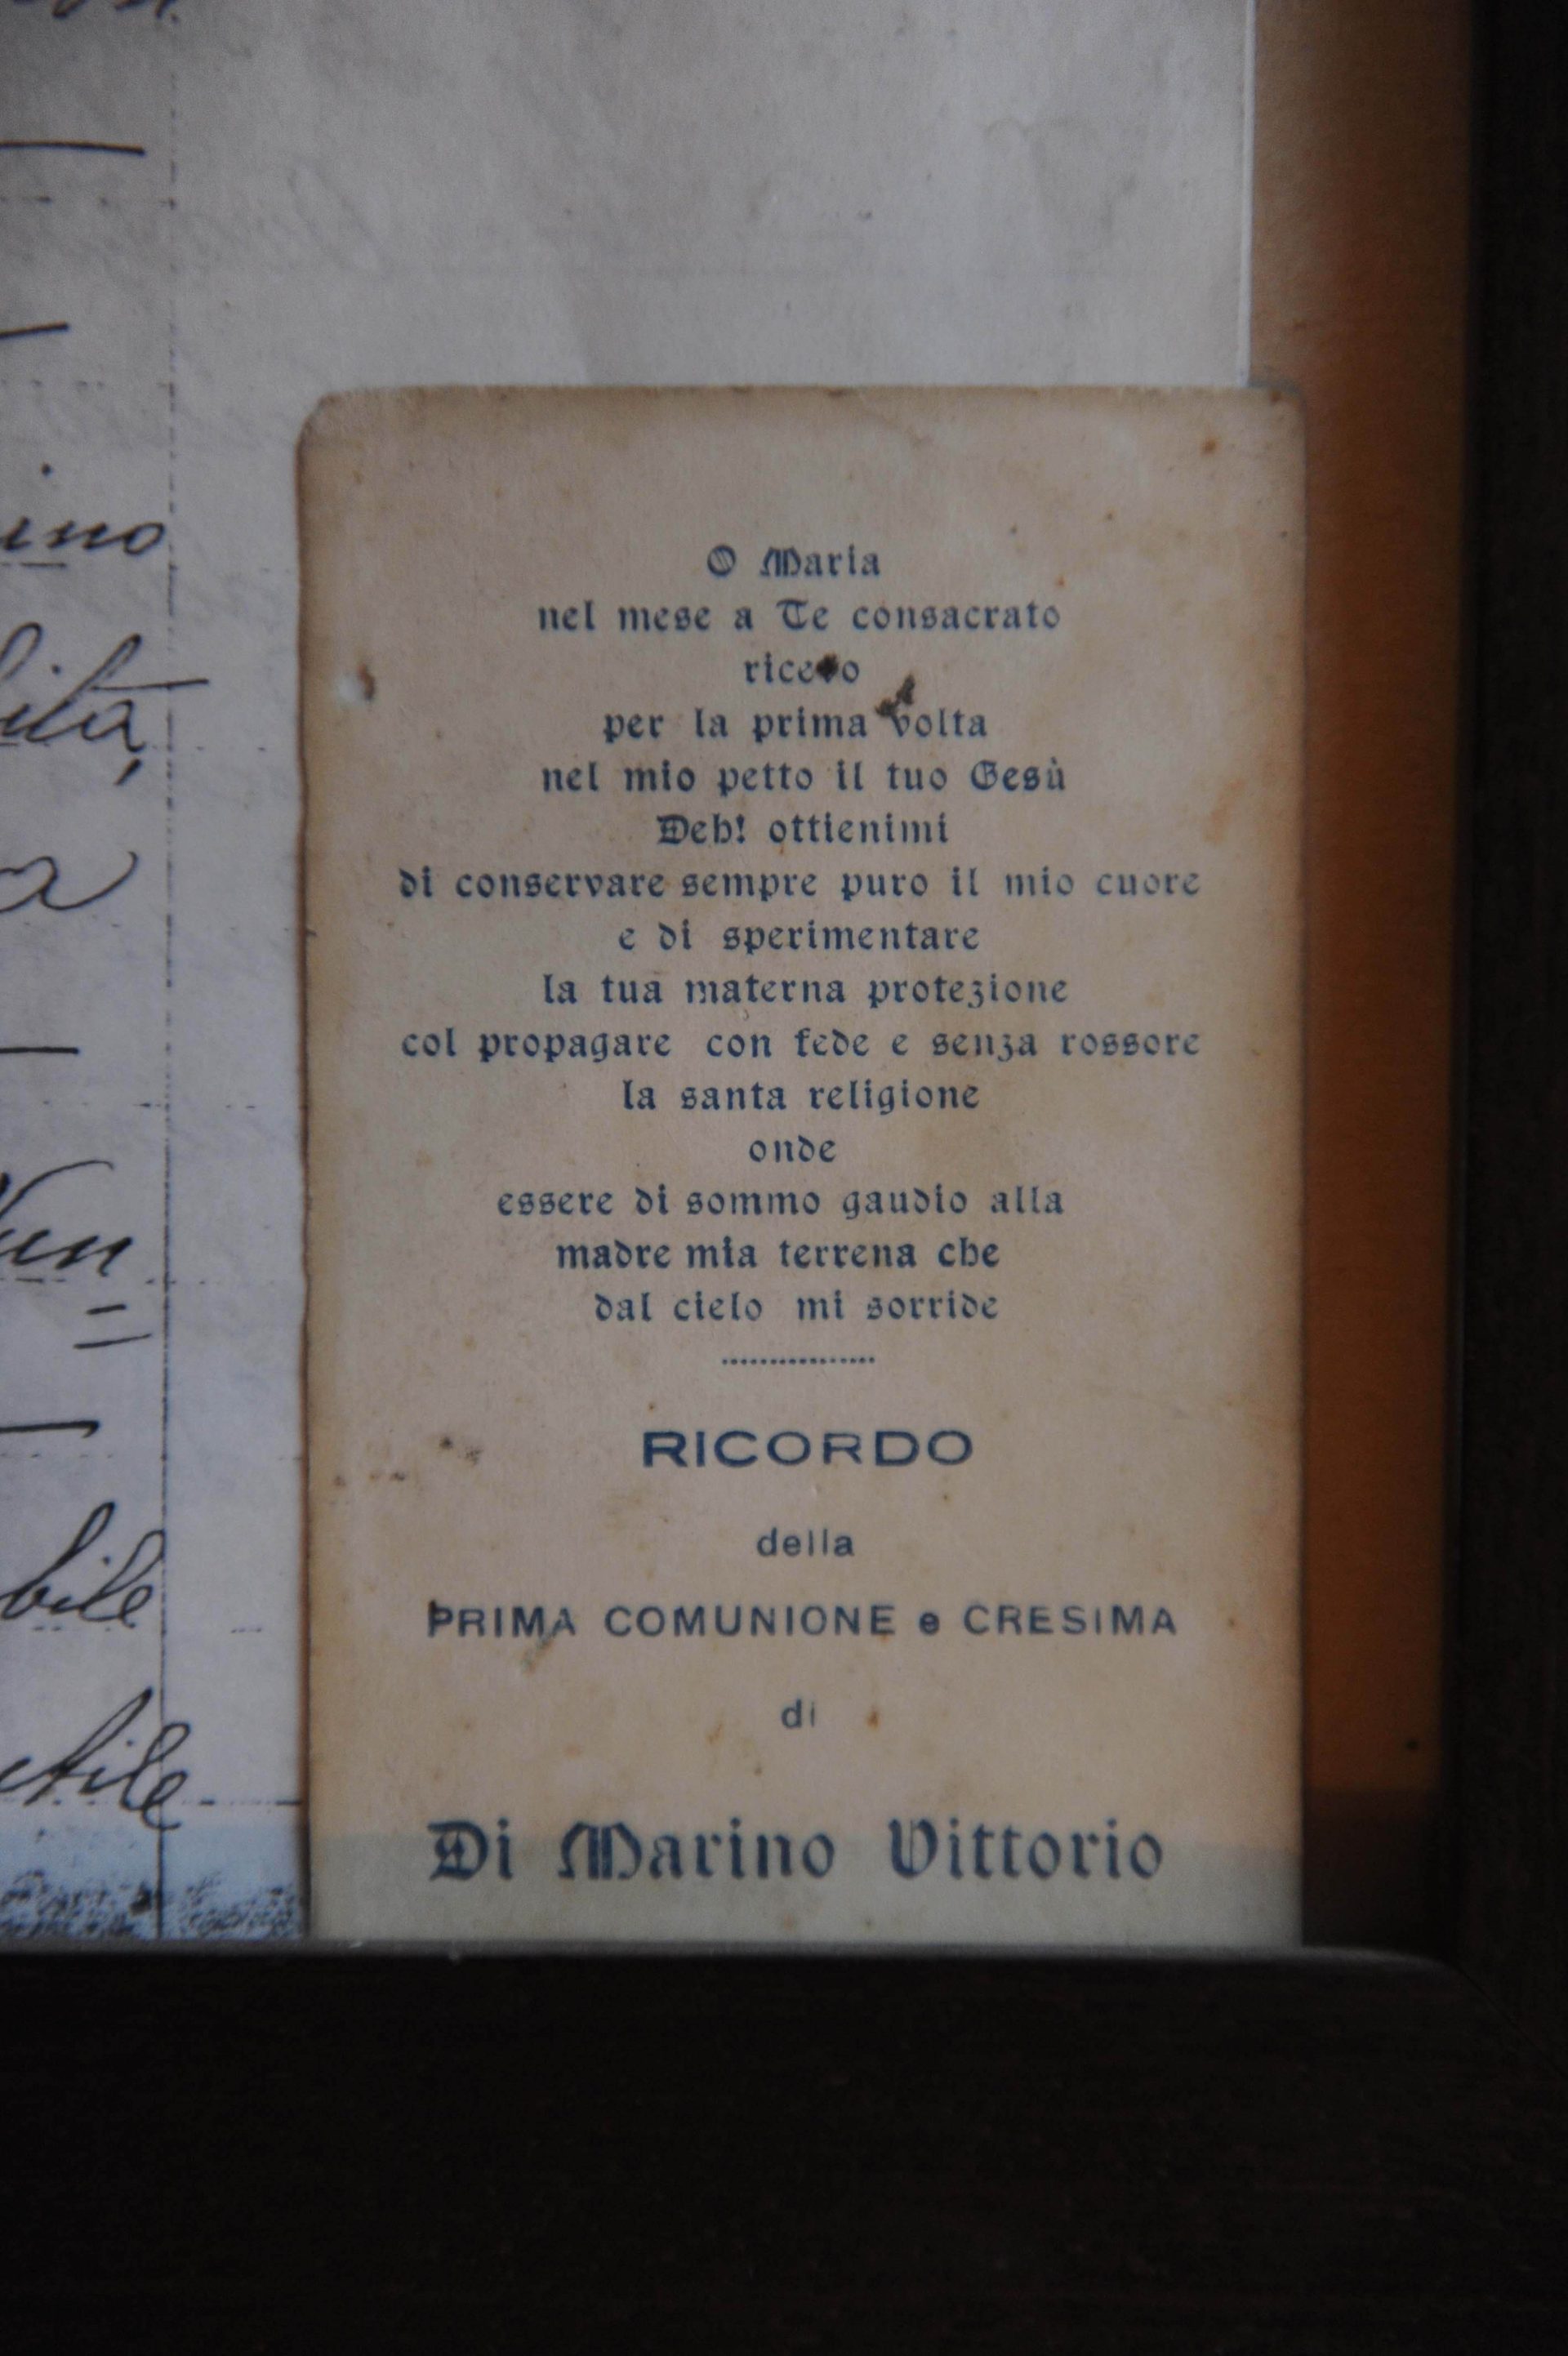 O Maria
nel mese a Te consacrato
ricevo
per la prima volta
nel mio petto il tuo Gesù
Deh! ottienimi
di conservare sempre puro il mio cuore
e di sperimentare
la tua materna protezione
col propagare con fede e senza rossore
la santa religione
onde
essere di sommo gaudio alla
madre mia terrena che
dal cielo mi sorride
RICORDO
della
PRIMA COMUNIONE e CRESIMA
di
Di Marino Vittorio